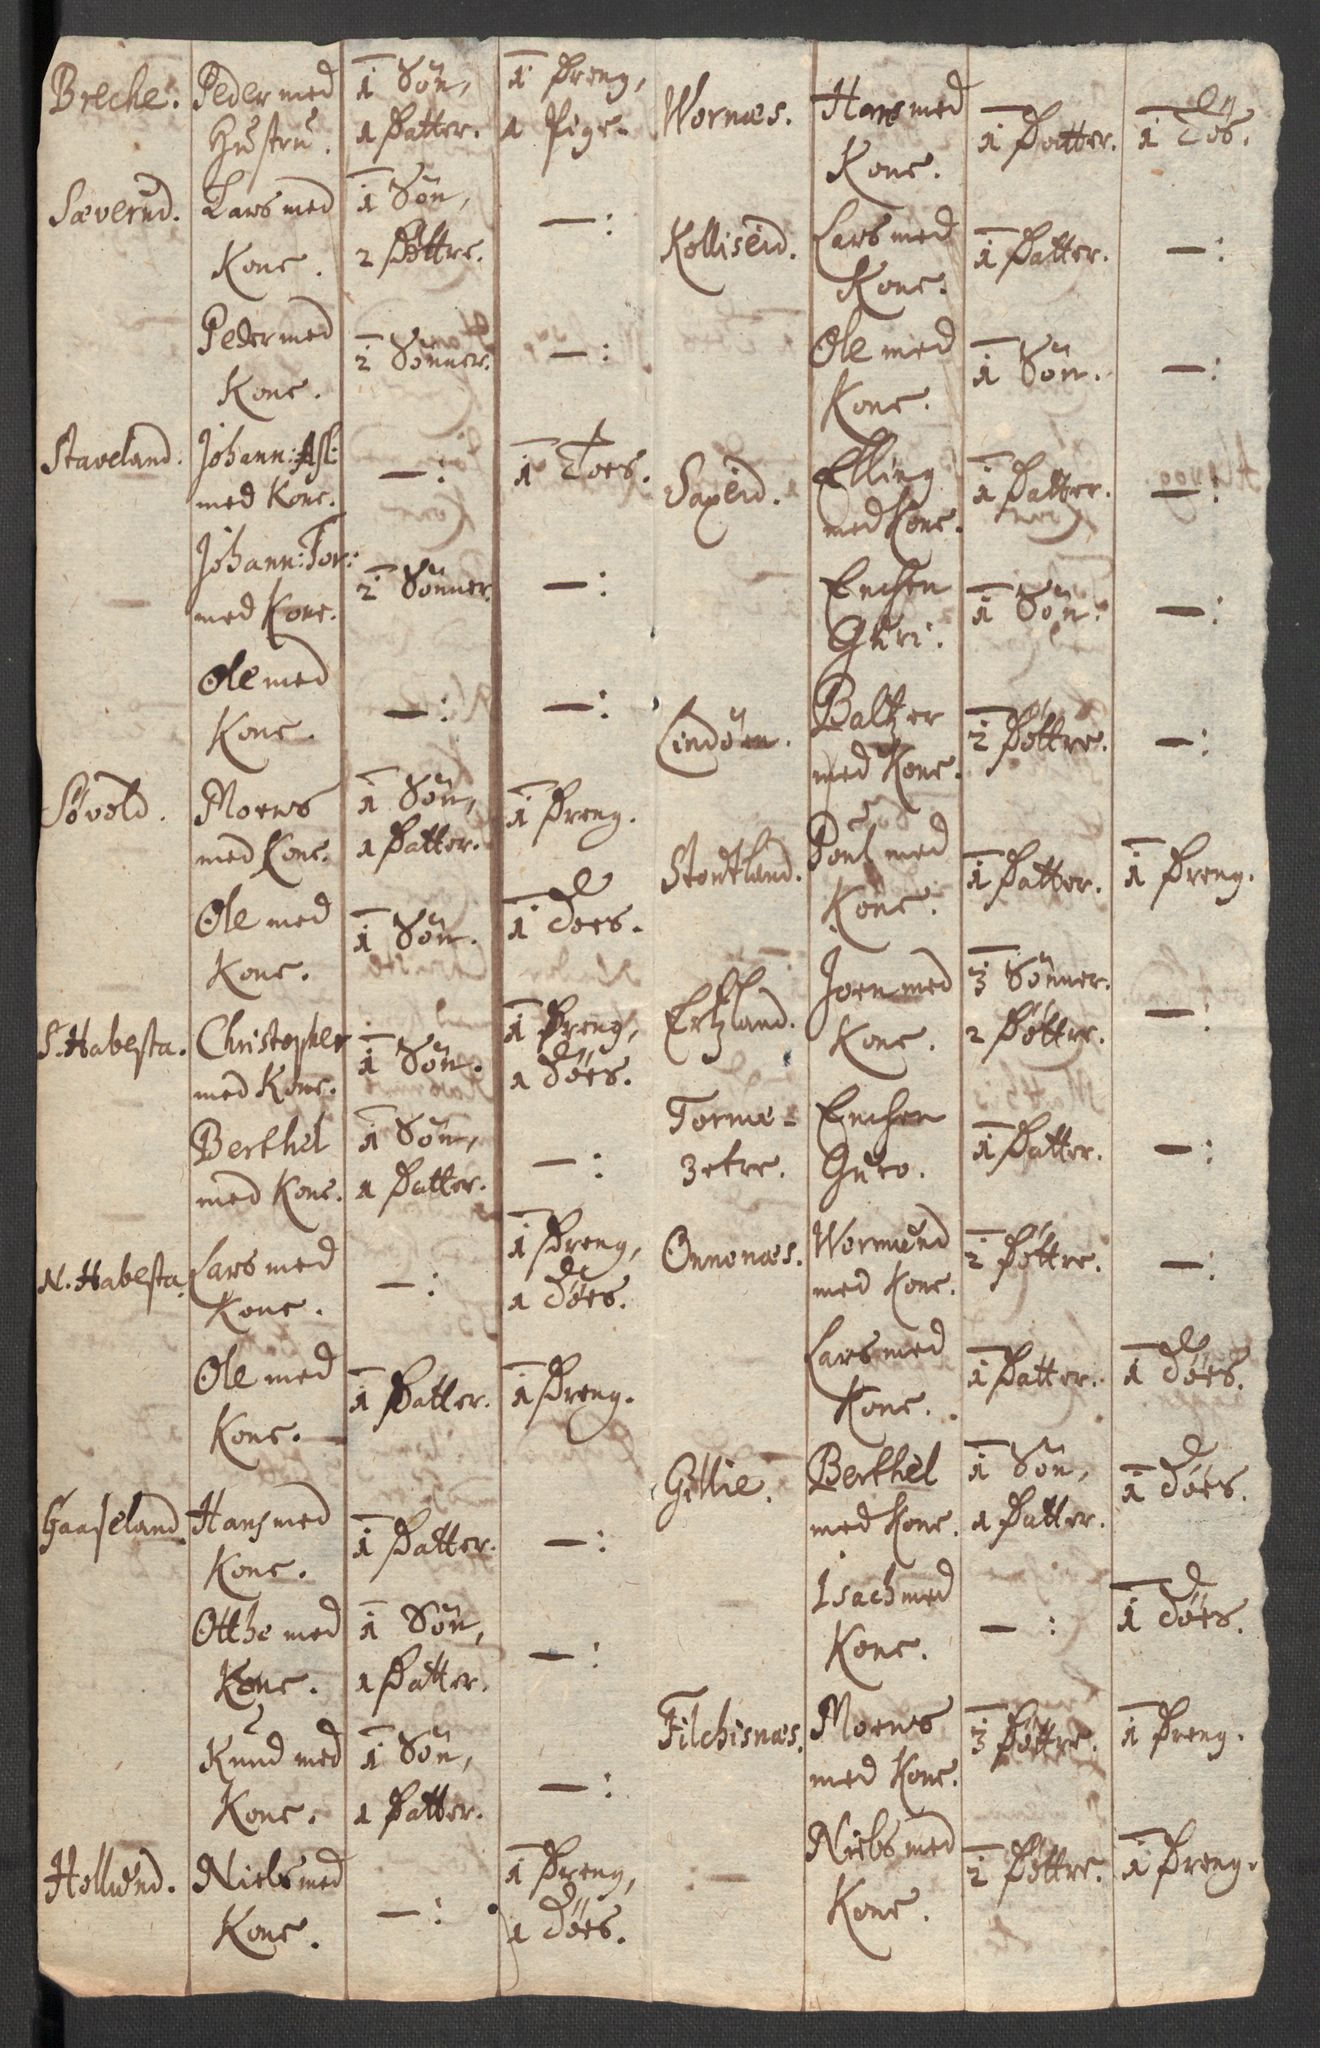 Breche. Peder med 1 Søn, 1 Dreng,
Hustru. 1 Datter. 1 Pige.
Sæverud. Lars med 1 Søn, —:
Kone. 2 Døttre.
Peder med 2 Sønner. —:
Kone.
Staveland. Johann: Asl: —: 1 Toes.
med Kone.
Johann: Tor: 2 Sønner. —:
med Kone.
Ole med —: —:
Kone.
Søvold. Moens 1 Søn, 1 Dreng.
med Kone. 1 Datter.
Ole med 1 Søn. 1 Does.
Kone.
S. Habesta. Christopher 1 Søn. 1 Dreng,
med Kone. 1 Døes.
Berthel 1 Søn, —:
med Kone. 1 Datter.
N. Habesta. Lars med —: 1 Dreng,
Kone. 1 Døes.
Ole med 1 Datter. 1 Dreng.
Kone.
Gaaseland Hans med 1 Datter. —:
Kone.
Otthe med 1 Søn, —:
Kone. 1 Datter.
Knud med 1 Søn, —:
Kone. 1 Datter.
Hollund. Niels med —: 1 Dreng,
Kone. 1 Døes.
Wornæs. Hans med 1 Datter. 1 Tøs.
Kone.
Kolliseid. Lars med 1 Datter. —:
Kone.
Ole med 1 Søn. —:
Kone.
Saxeid. Elling 1 Datter. —:
med Kone.
Enchen 1 Søn. —:
Guri.
Lindøen. Baltzer 2 Døttre. —:
med Kone.
Stordtland. Poul med 1 Datter. 1 Dreng.
Kone.
Ertzland. Joen med 3 Sønner. —:
Kone. 2 Døttre.
Tormæ- Enchen 1 Datter. —:
zetre. Guro.
Onnenæs. Wermund 2 Døttre. —:
med Kone.
Lars med 1 Datter. 1 Døes.
Kone.
Gillie. Berthel 1 Søn, 1 Døes.
med Kone. 1 Datter.
Isach med —: 1 Døes.
Kone.
Filchisnæs. Moens 3 Døttre. 1 Dreng.
med Kone.
Niels med 2 Døttre. 1 Dreng.
Kone.